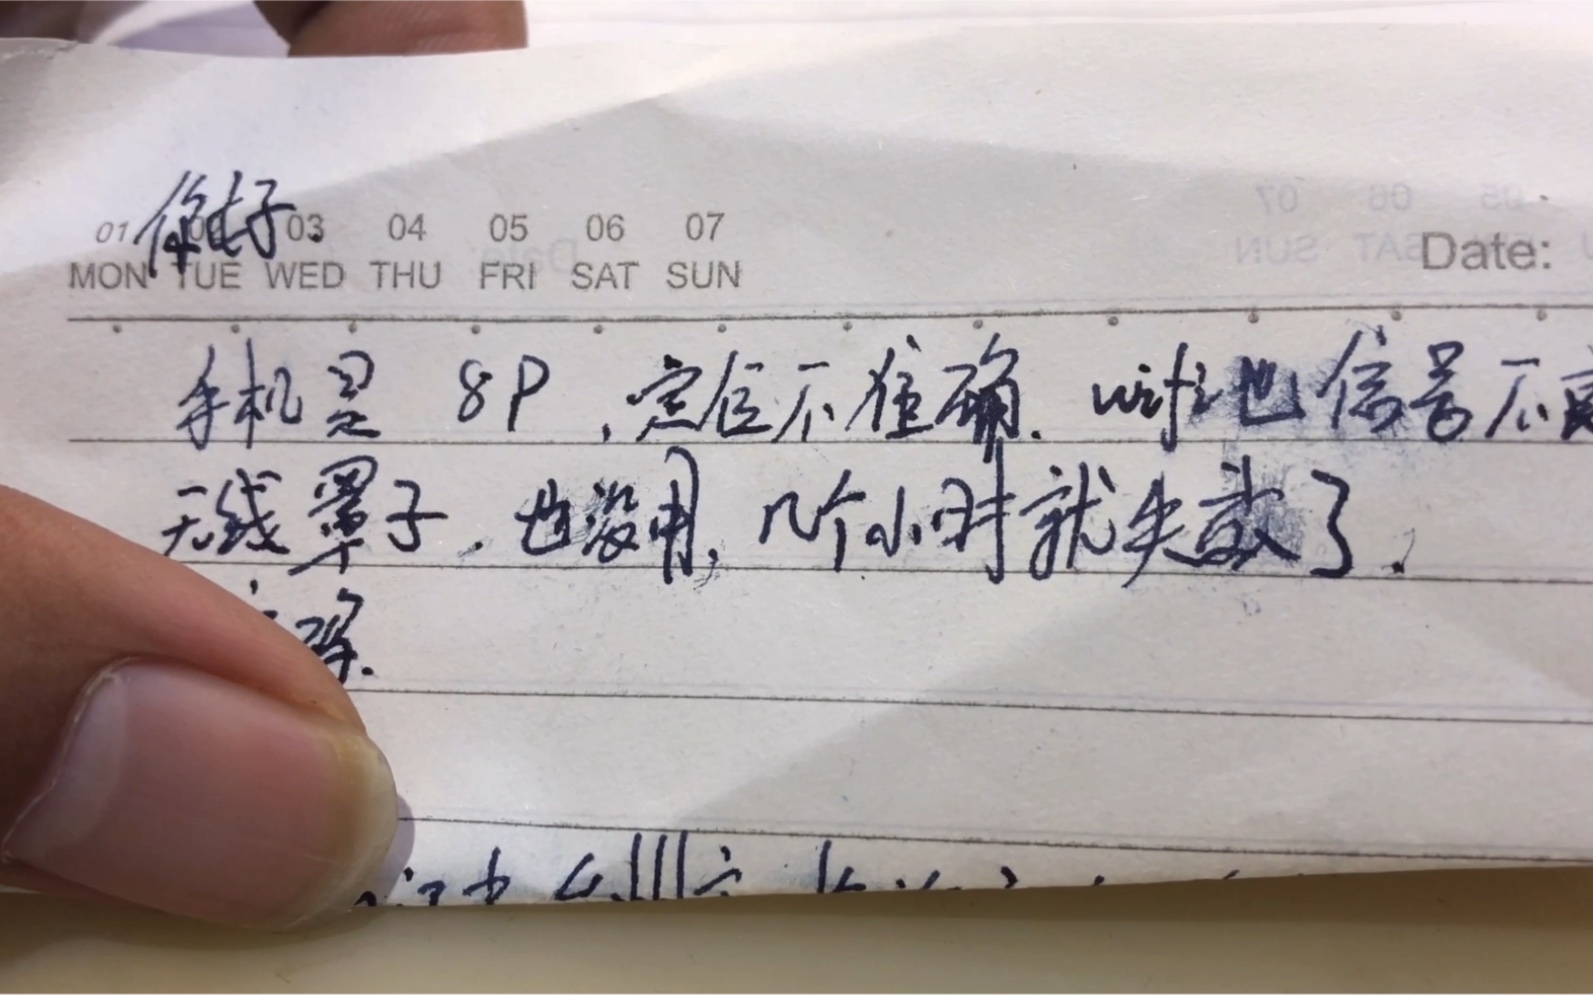 你好.
01 02 03 04 05 06 07
MON TUE WED THU FRI SAT SUN
Date:
手机是 8P,定位不准确. wifi也信号不
无线罩子,也没用,几个小时就失效了.